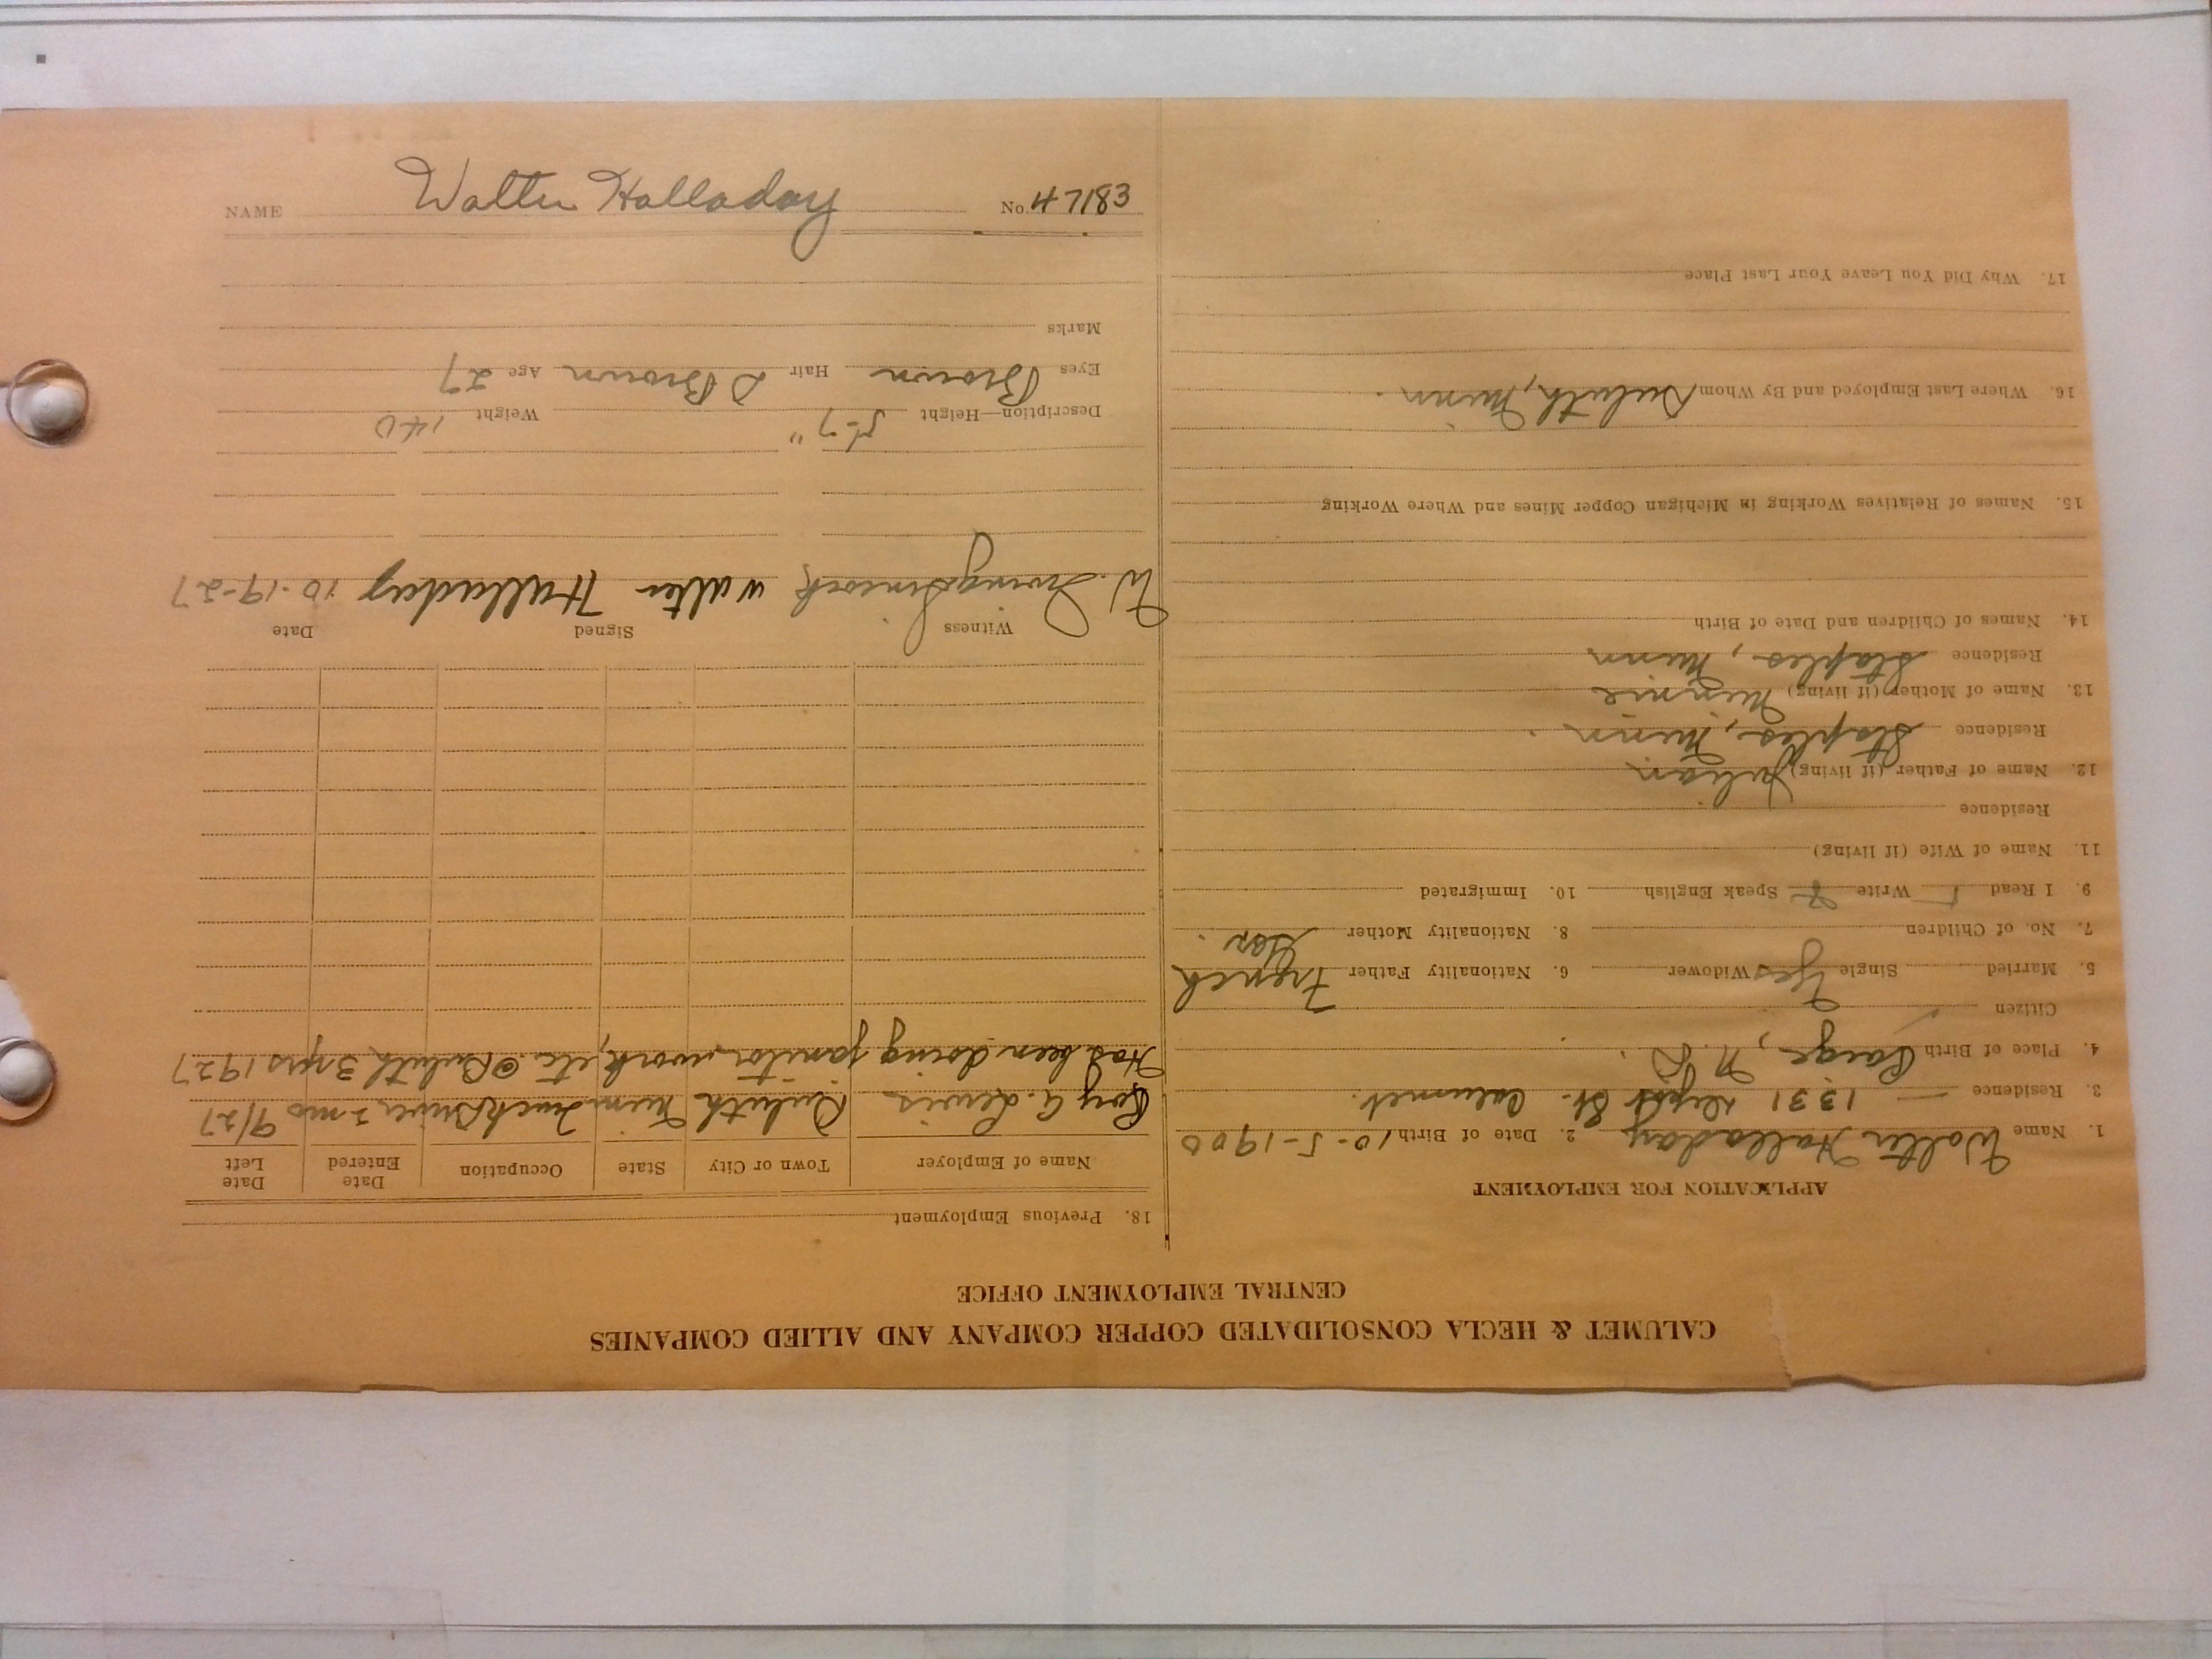 CALUMET & HECLA CONSOLIDATED COPPER COMPANY AND ALLIED COMPANIES
CENTRAL EMPLOYMENT OFFICE
APPLICATION FOR EMPLOYMENT
1. Name Walter Halladay 2. Date of Birth 10-5-1900
3. Residence 1331 St. Calumet.
4. Place of Birth Page, N.D.
Citizen ✓
5. Married Single Yes Widower 6. Nationality Father French
7. No. of Children 8. Nationality Mother Ger.
9. I Read Write Speak English 10. Immigrated
11. Name of Wife (if living)
Residence
12. Name of Father (if living) Julian
Residence Staples, Minn.
13. Name of Mother (if living) Minnie
Residence Staples, Minn
14. Names of Children and Date of Birth
15. Names of Relatives Working in Michigan Copper Mines and Where Working
16. Where Last Employed and By Whom Duluth, Minn.
17. Why Did You Leave Your Last Place
18. Previous Employment
Name of Employer Town or City State Occupation Date Entered Date Left
Roy A. Lewis Duluth Minn Truck Driver 2 mo 9/27
Has been doing janitor work, etc. @ Duluth 3 yrs 1927
Witness Signed Date
W. Irving Walter Halladay 10-19-27
Description—Height 5-7" Weight 140
Eyes Brown Hair D Brown Age 27
Marks
NAME Walter Halladay No. 47183